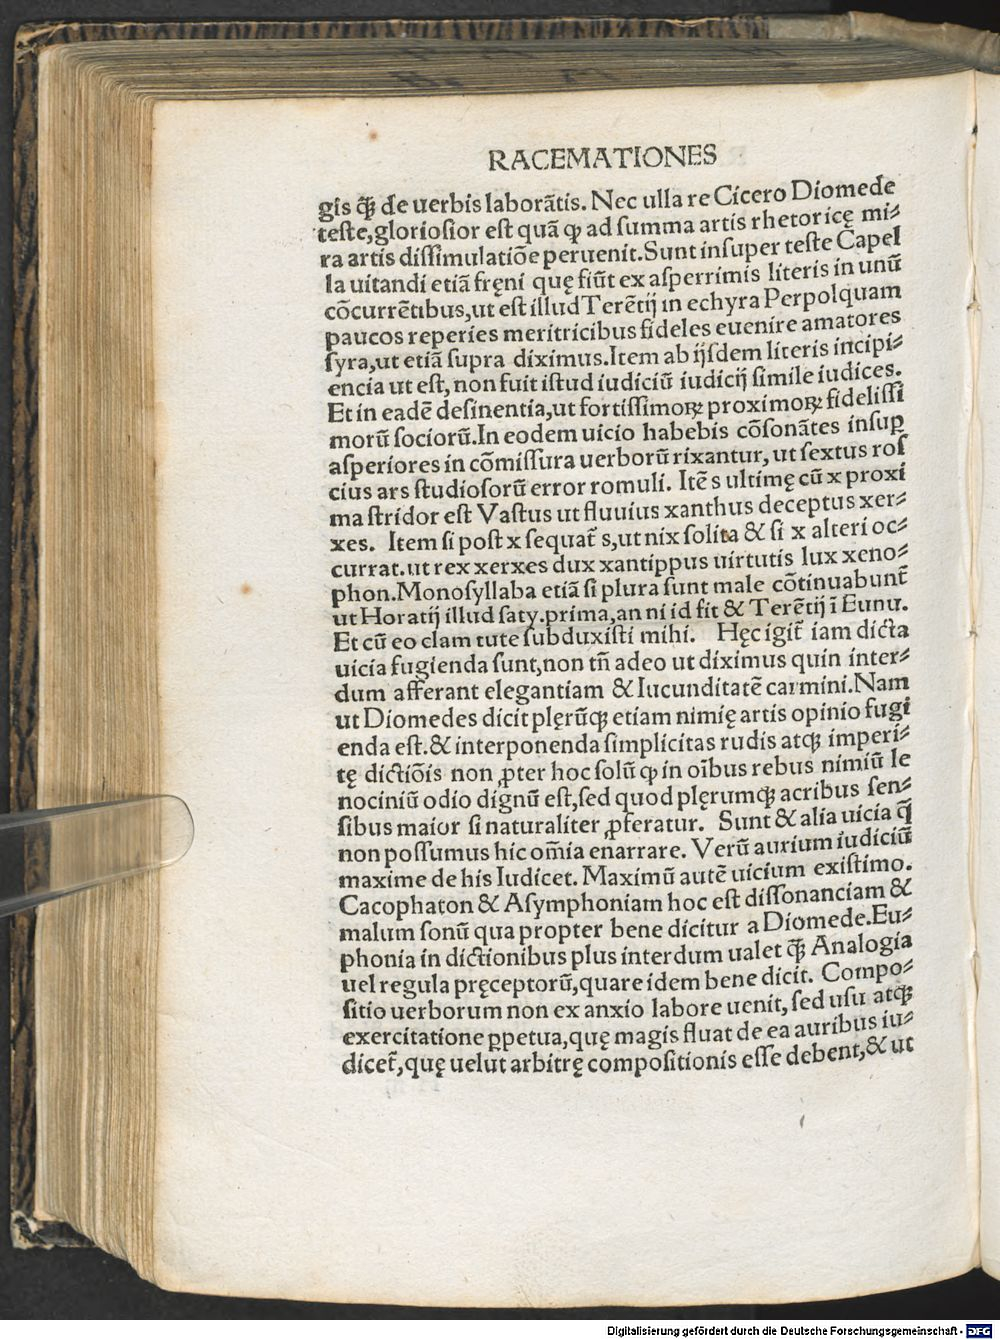 RACEMATIONES
gis q̃ꝫ de uerbis laborãtis. Nec ulla re Cicero Diomede
teste,gloriosior est quã ꝙ ad summa artis rhetoricę mi⸗
ra artis dissimulatiõe peruenit.Sunt insuper teste Capel
la uitandi etiã fręni quę fiũt ex asperrimis literis in unũ
cõcurrẽtibus,ut est illud Terẽtij in echyra Perpolquam
paucos reperies meritricibus fideles euenire amatores
syra,ut etiã supra diximus.Item ab ijsdem literis incipi⸗
encia ut est, non fuit istud iudiciũ iudicij simile iudices.
Et in eadẽ desinentia,ut fortissimoꝝ proximoꝝ fidelissi
morũ sociorũ.In eodem uicio habebis cõsonãtes insuꝑ
asperiores in cõmissura uerborũ rixantur, ut sextus ros
cius ars studiosorũ error romuli. Itẽ s ultimę cũ x proxi
ma stridor est Vastus ut fluuius xanthus deceptus xer⸗
xes. Item si post x sequat̃ s,ut nix solita & si x alteri oc⸗
currat.ut rex xerxes dux xantippus uirtutis lux xeno⸗
phon.Monosyllaba etiã si plura sunt male cõtinuabunt̃
ut Horatij illud saty.prima,an ni id fit & Terẽtij ĩ Eunu.
Et cũ eo clam tute subduxisti mihi. Hęc igit̃ iam dicta
uicia fugienda sunt,non tñ adeo ut diximus quin inter⸗
dum afferant elegantiam & Iucunditatẽ carmini.Nam
ut Diomedes dicit plęrũqꝫ etiam nimię artis opinio fugi
enda est.& interponenda simplicitas rudis atqꝫ imperi⸗
tę dictiõis non ꝓpter hoc solũ ꝙ in oĩbus rebus nimiũ le
nociniũ odio dignũ est,sed quod plęrumqꝫ acribus sen⸗
sibus maior si naturaliter ꝓferatur. Sunt & alia uicia q̃
non possumus hic om̃ia enarrare. Verũ aurium iudiciũ
maxime de his Iudicet. Maximũ autẽ uicium existimo.
Cacophaton & Asymphoniam hoc est dissonanciam &
malum sonũ qua propter bene dicitur a Diomede.Eu⸗
phonia in dictionibus plus interdum ualet q̃ꝫ Analogia
uel regula pręceptorũ,quare idem bene dicit. Compo⸗
sitio uerborum non ex anxio labore uenit, sed usu atqꝫ
exercitatione ꝑpetua,quę magis fluat de ea auribus iu⸗
dicet̃,quę uelut arbitrę compositionis esse debent,& ut
Digitalisierung gefördert durch die Deutsche Forschungsgemeinschaft - DFG